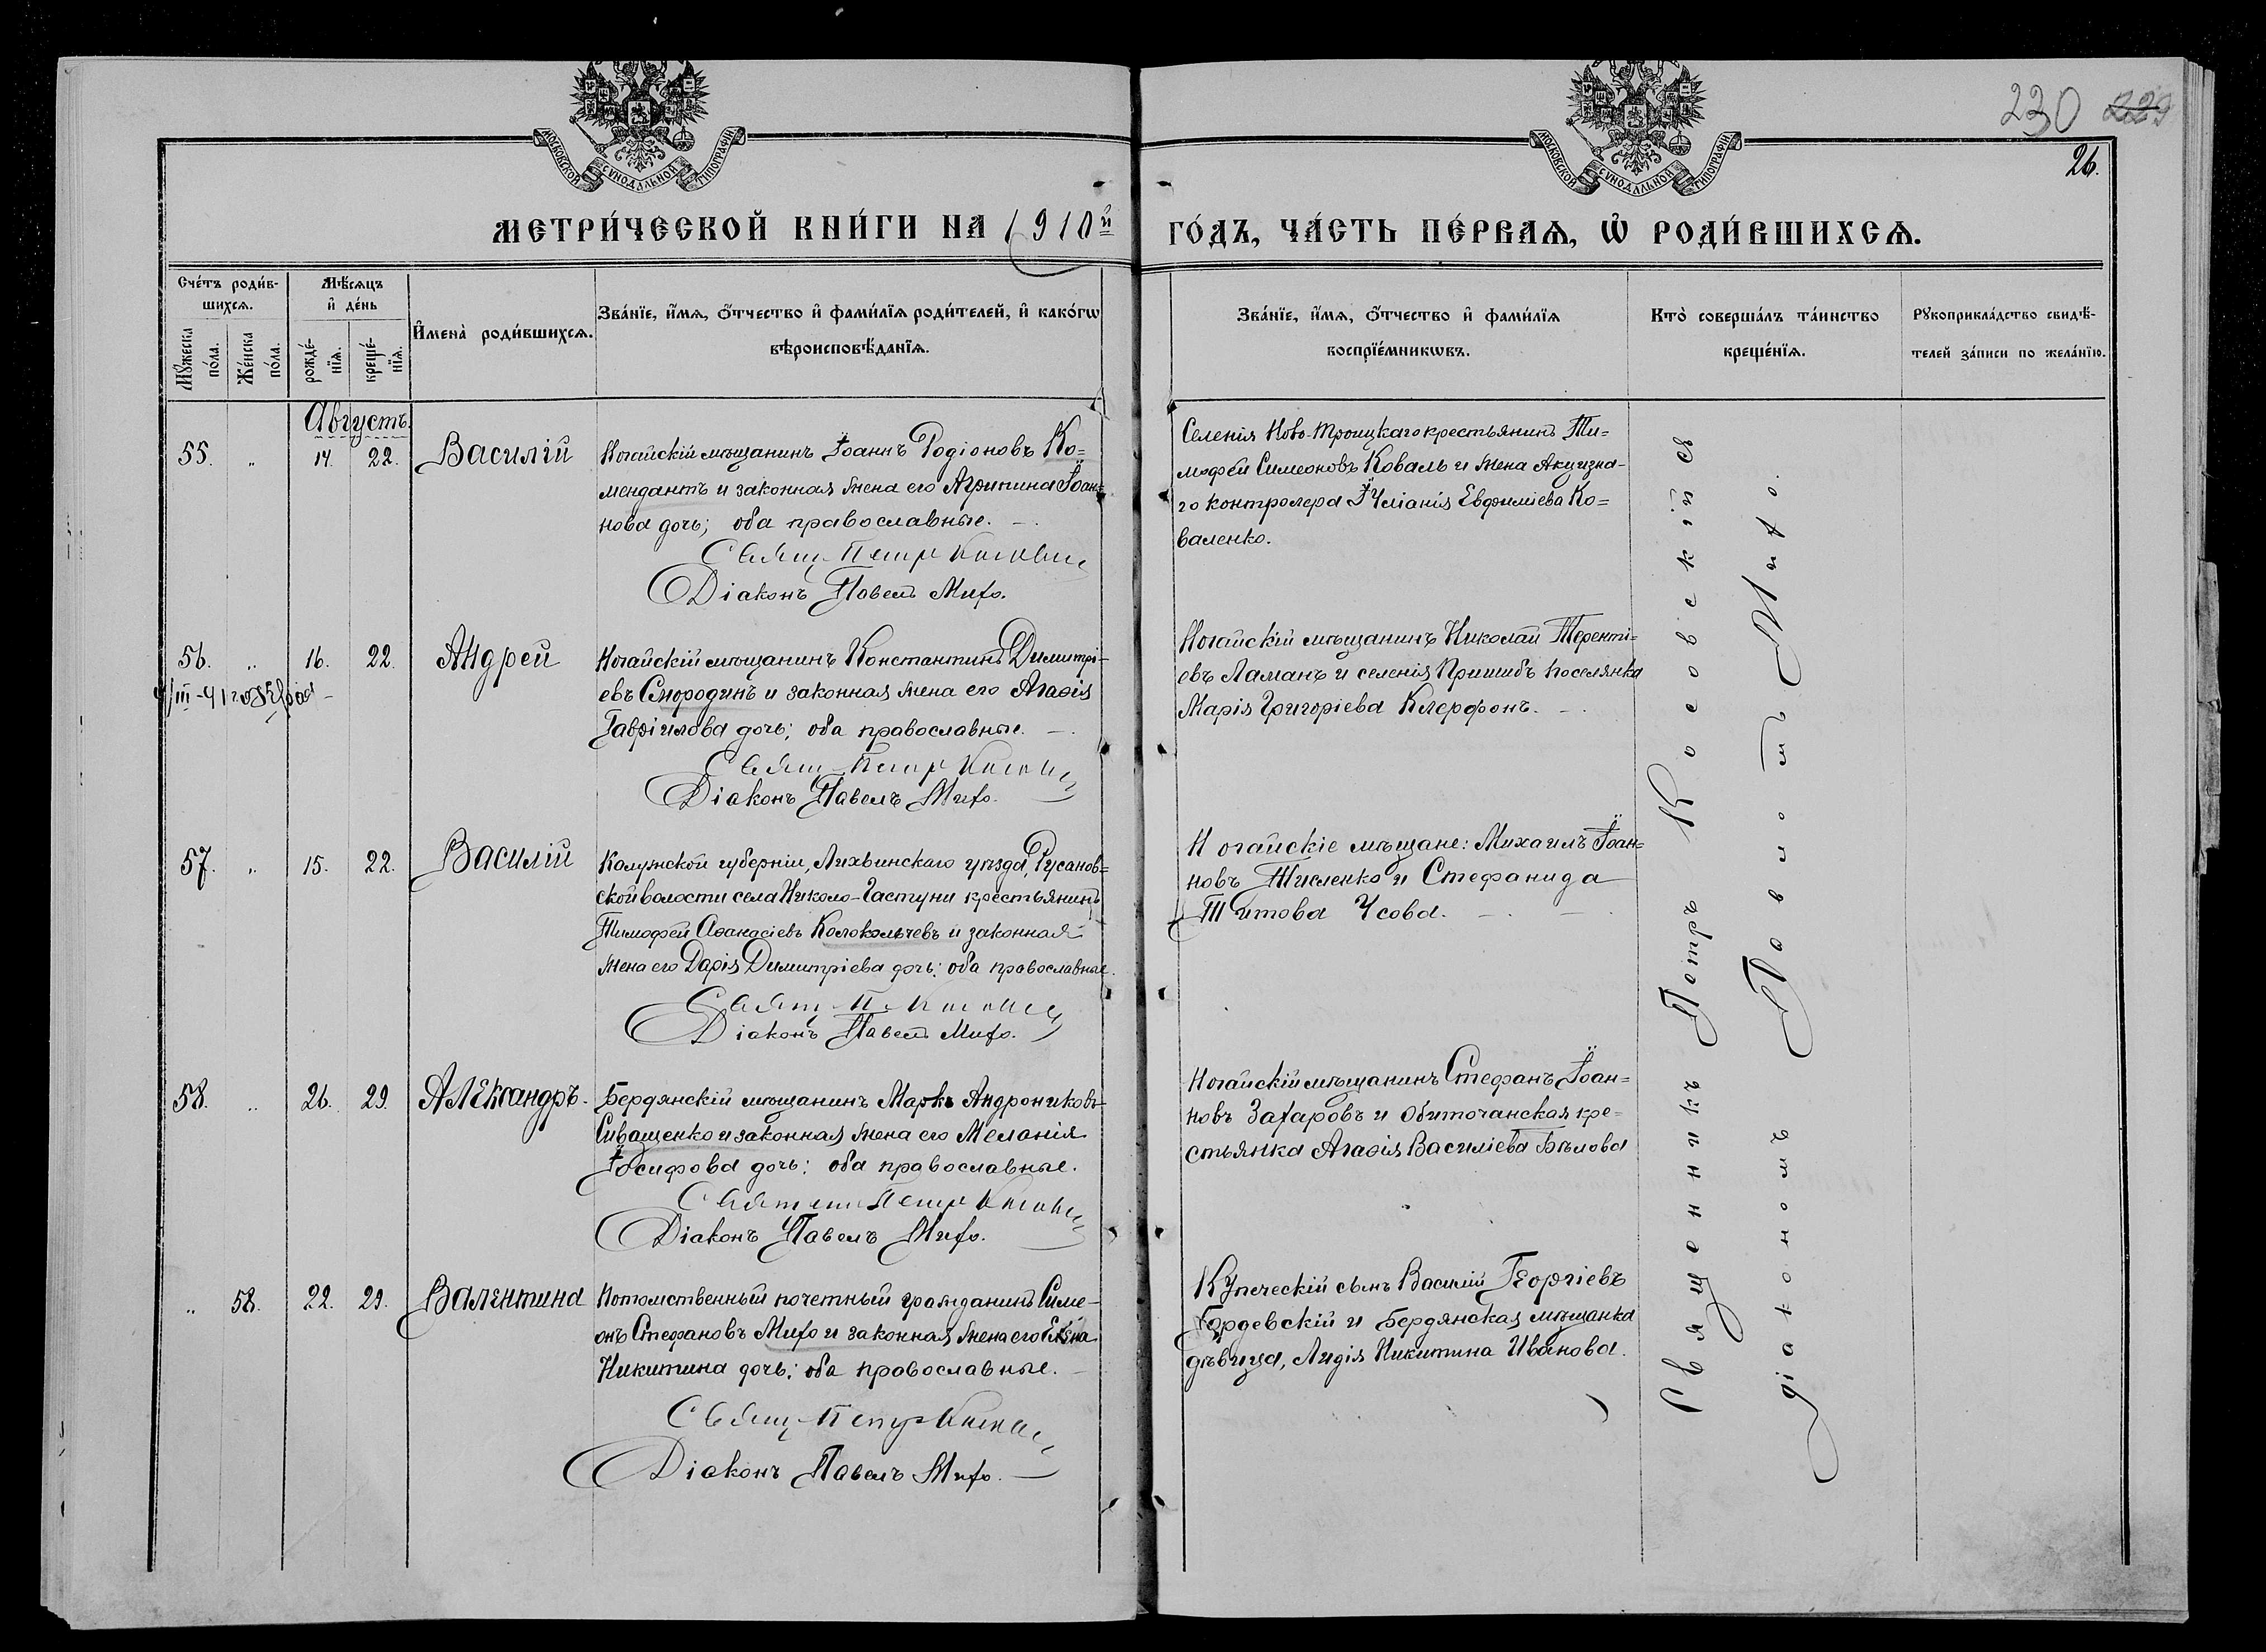 230 229
26.
МОСКОВСКОЙ СѴНОДАЛЬНОЙ ТИПОГРАФІИ
МОСКОВСКОЙ СѴНОДАЛЬНОЙ ТИПОГРАФІИ
МЕТРИ́ЧЕСКОЙ КНИ́ГИ НА 1910й ГО́ДЪ, ЧА́СТЬ ПЕ́РВАѦ, Ѡ҆ РОДИ́ВШИХСѦ.
Сче́тъ роди́в-
шихсѧ.
Мꙋ́жеска по́ла.
Же́нска по́ла.
Мѣ́сѧцъ
и҆ де́нь
рожде́-
нїѧ.
креще́-
нїѧ.
И҆мена̀ роди́вшихсѧ.
Зва́нїе, и҆́мѧ, ѻ҆́тчество и҆ фами́лїѧ роди́телей, и҆ како́гѡ
вѣроисповѣ́данїѧ.
Зва́нїе, и҆́мѧ, ѻ҆́тчество и҆ фами́лїѧ
воспрїе́мникѡвъ.
Кто̀ соверша́лъ та́инство
креще́нїѧ.
Рꙋкоприкла́дство свидѣ́-
телей за́писи по жела́нїю.
Августъ.
55. „ 14. 22. Василій
Ногайскій мѣщанинъ Іоаннъ Родіоновъ Ко=
мендантъ и законная жена его Агрипина Іоан=
нова дочь; оба православные. –.
Свящ. Петръ
Діаконъ Павелъ Михо.
Селенія Ново-Троицкаго крестьянинъ Ти=
мофей Симеоновъ Коваль и жена Акцизна-
го контролера Іуліанія Евфиміева Ко=
валенко.
56. „ 16. 22. Андрей
Ногайскій мѣщанинъ Константинъ Димитрі-
евъ Смородинъ и законная жена его Агаѳія
Гавріилова дочь; оба православные. –.
Свящ. Петръ
Діаконъ Павелъ Михо.
Ногайскій мѣщанинъ Николай Теренті=
евъ Ламанъ и селенія Пришибъ поселянка
Марія Григоріева Клерфонъ. –.
57. „ 15. 22. Василій
Калужской губерніи, Лихвинскаго уѣзда, Русанов=
ской волости села Николо-Гастуни крестьянинъ
Тимофей Аѳанасіевъ Колокольчевъ и законная
жена его Дарія Димитріева дочь: оба православные.
Свящ. П.
Діаконъ Павелъ Михо.
Ногайскіе мѣщане: Михаилъ Іоан=
новъ Тисленко и Стефанида
Титова Усова. –. –.
58. „ 26. 29. Александръ.
Бердянскій мѣщанинъ Маркъ Андрониковъ
Сиващенко и законная жена его Меланія
Іосифова дочь: оба православные.
Святши Петръ
Діаконъ Павелъ Михо.
Ногайскій мѣщанинъ Стефанъ Іоан=
новъ Захаровъ и Обиточанская кре=
стьянка Агаѳія Василіева Бѣлова
„ 58. 22. 29. Валентина
Потомственный почетный гражданинъ Симе-
онъ Стефановъ Михо и законная жена его Елена
Никитина дочь: оба православные. –
Свящ. Петръ
Діаконъ Павелъ Михо. –
Купеческій сынъ Василій Георгіевъ
Гордевскій и Бердянская мѣщанка
дѣвица, Лидія Никитина Иванова.
Священникъ Петръ Косовскій съ
діакономъ Павломъ Михо.